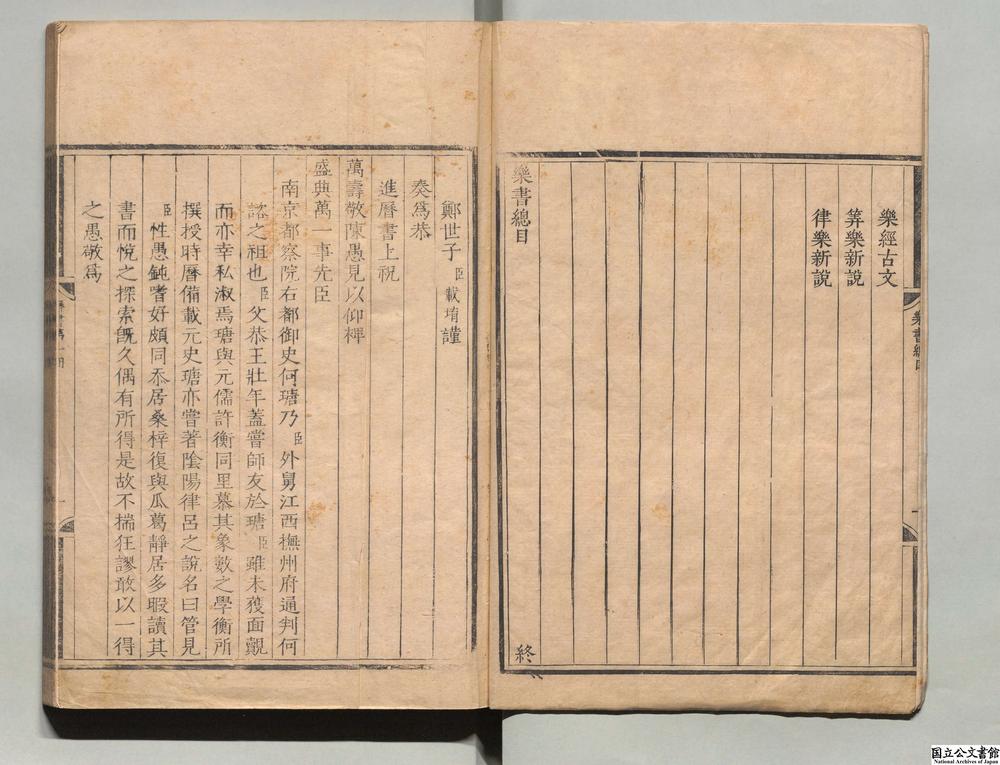 樂經古文
筭樂新說
律樂新說
樂書總目
終
鄭世子臣載堉謹
奏爲恭
進曆書上祝
萬壽敬陳愚見以仰裨
盛典萬一事先臣
南京都察院右都御史何瑭乃臣外舅江西撫州府通判何
諮之祖也臣父恭王壯年蓋嘗師友於瑭臣雖未獲面覿
而亦幸私淑焉瑭與元儒許衡同里慕其象數之學衡所
撰授時曆備載元史瑭亦嘗著陰陽律呂之說名曰管見
臣性愚鈍嗜好頗同忝居桑梓復與瓜葛靜居多暇讀其
書而悅之探索旣久偶有所得是故不揣狂謬敢以一得
之愚敬爲
国立公文書館
National Archives of Japan